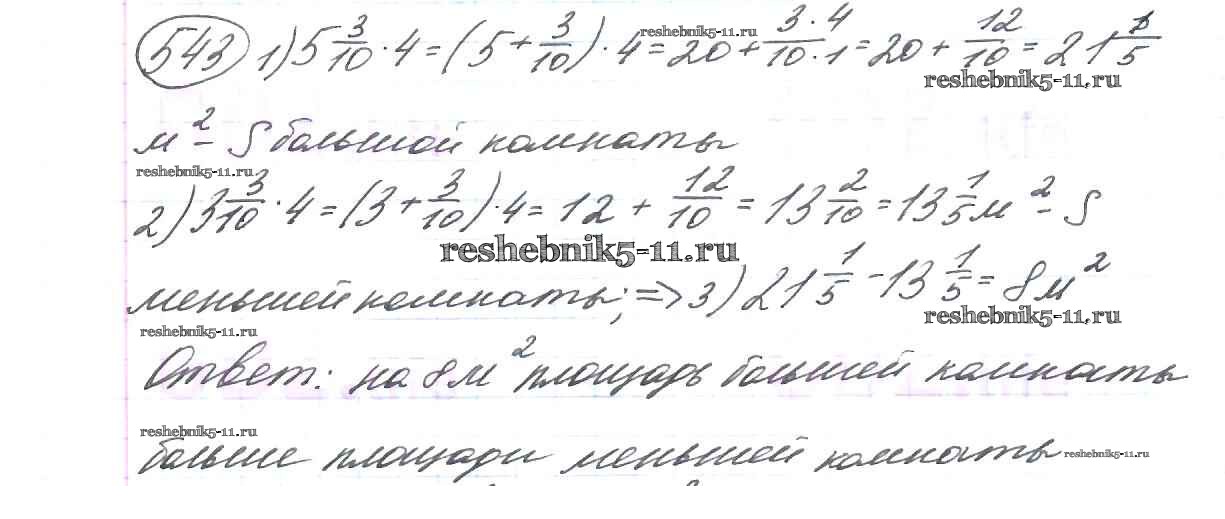 543 1) 5 3/10 · 4 = (5 + 3/10) · 4 = 20 + 3·4/10·1 = 20 + 12/10 = 21 1/5
reshebnik5-11.ru
reshebnik5-11.ru
м² – S большой комнаты
reshebnik5-11.ru
2) 3 3/10 · 4 = (3 + 3/10) · 4 = 12 + 12/10 = 13 2/10 = 13 1/5 м² – S
reshebnik5-11.ru
меньшей комнаты; => 3) 21 1/5 – 13 1/5 = 8 м²
reshebnik5-11.ru
reshebnik5-11.ru
Ответ: на 8 м² площадь большей комнаты
reshebnik5-11.ru
больше площади меньшей комнаты
reshebnik5-11.ru